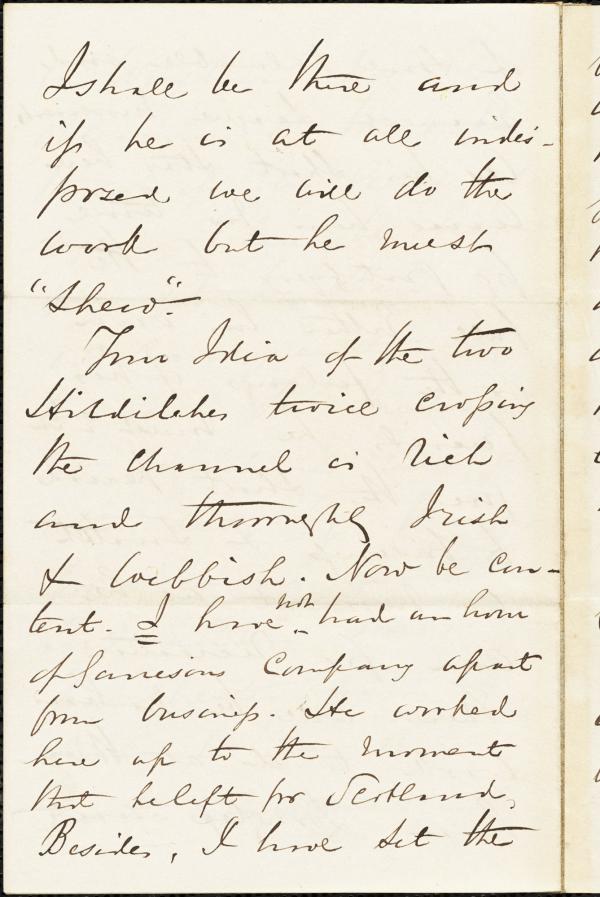 I shall be there and
if he is at all indis-
posed we will do the
work but he must
"Shew".
Your Idea of the two
Hilditches twice crossing
the channel is rich
and thoroughly Irish
& Webbish. Now be con-
tent. I have not had an hour
of Jamesons Company apart
from business. He worked
here up to the moment
that he left for Scotland,
Besides, I have set the